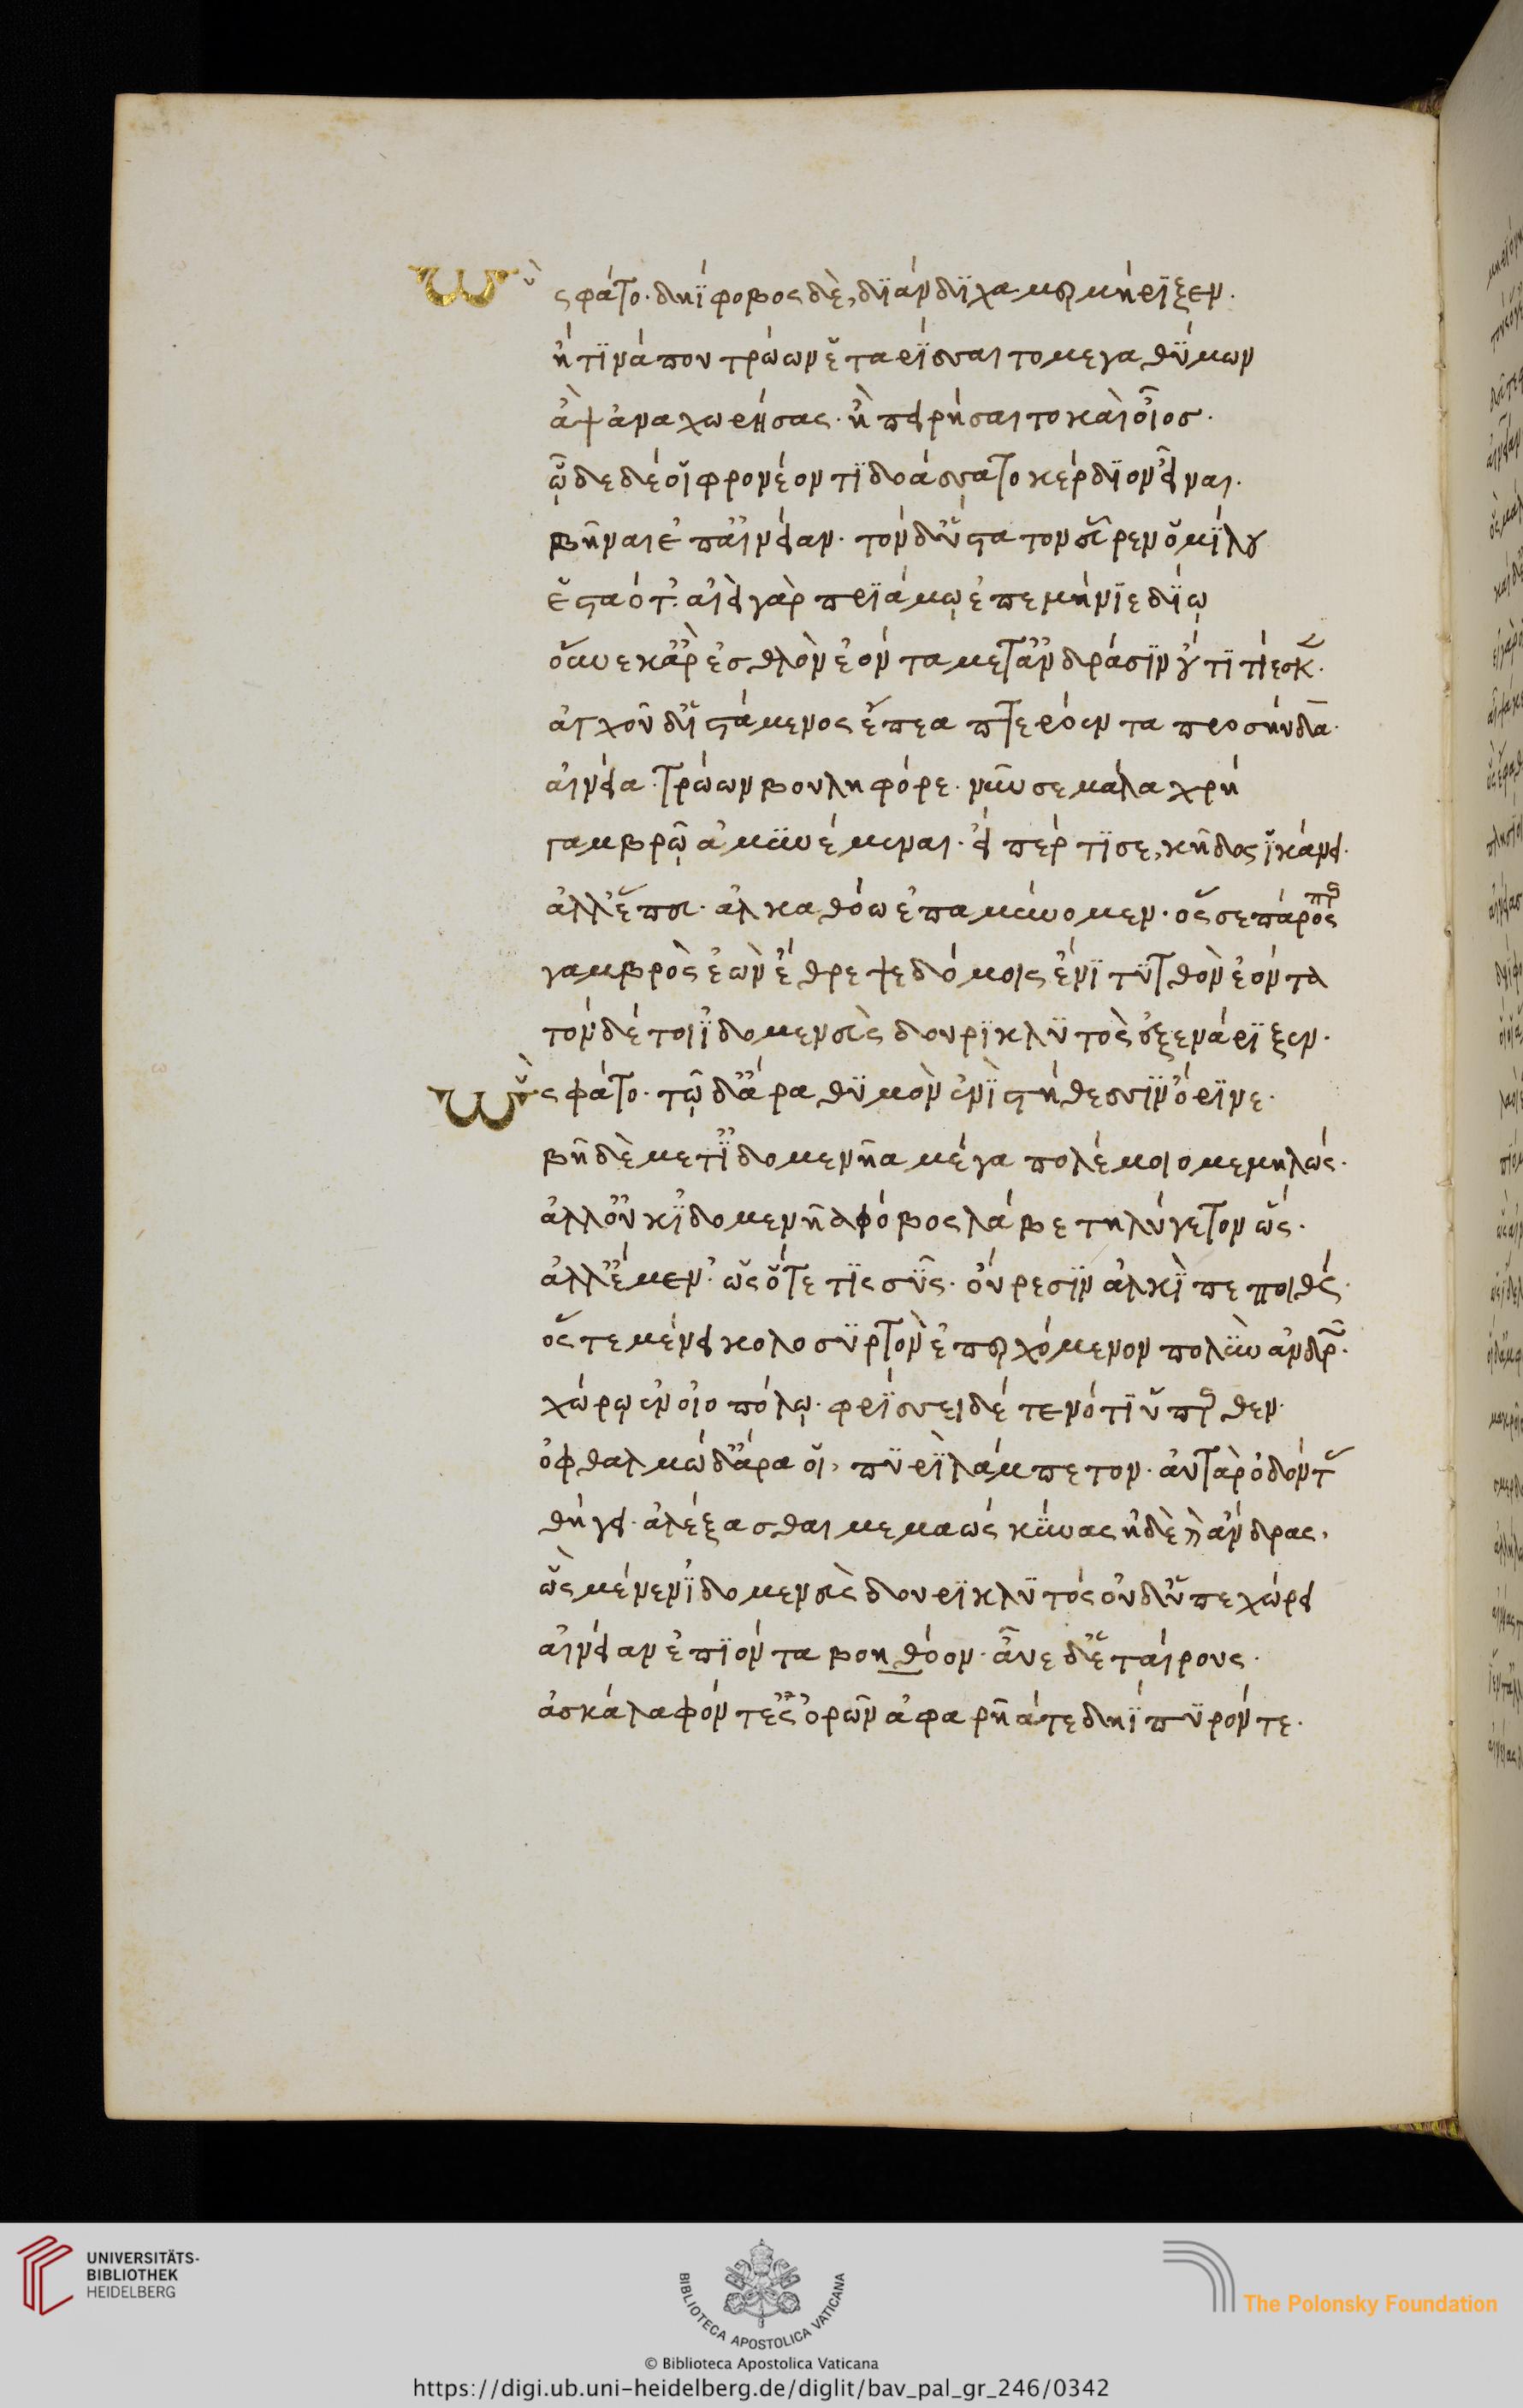 Ὣς φάτο· δηΐφοβος δὲ, διάνδιχα μερμήριξεν·
ἤ τινά που τρώων ἑταρίσσαιτο μεγαθύμων
ἂψ ἀναχωρήσας· ἢ πειρήσαιτο καὶ οἶος·
ὧδε δέ οἱ φρονέοντι δοάσσατο κέρδιον εἶναι·
βῆναι ἐπ' αἰνείαν· τὸν δ' ὕστατον εὗρεν ὁμίλου
ἑσταότ'· αἰεὶ γὰρ πριάμῳ ἐπεμήνιε δίῳ
οὕνεκ' ἄρ' ἐσθλὸν ἐόντα μετ' ἀνδράσιν οὔ τι τίεσκε·
ἀγχοῦ δ' ἱστάμενος ἔπεα πτερόεντα προσηύδα·
αἰνεία· τρώων βουληφόρε· νῦν σε μάλα χρή
γαμβρῷ ἀμυνέμεναι· εἴ πέρ τι σε, κῆδος ἱκάνει·
ἀλλ' ἕπευ· ἀλκαθόω ἐπαμύνομεν· ὅς σε πάρος περ
γαμβρὸς ἐὼν ἔθρεψε δόμοις ἔνι τυτθὸν ἐόντα
τὸν δέ τοι ἰδομενεὺς δουρικλυτὸς ἐξενάριξεν·
Ὣς φάτο· τῷ δ' ἄρα θυμὸν ἐνὶ στήθεσσιν ὄρινε·
βῆ δὲ μετ' ἰδομενῆα μέγα πολέμοιο μεμηλώς·
ἀλλ' οὐκ ἰδομενῆα φόβος λάβε τηλύγετον ὥς·
ἀλλ' ἔμεν'· ὡς ὅτε τις σῦς· οὔρεσιν ἀλκὶ πεποιθώς·
ὅς τε μένει κολοσυρτὸν ἐπερχόμενον πολὺν ἀνδρῶν·
χώρῳ ἐν οἰοπόλῳ· φρίσσει δέ τε νότι ὕπερθεν·
ὀφθαλμὼ δ' ἄρα οἱ, πυρὶ λάμπετον· αὐτὰρ ὀδόντας
θήγει· ἀλέξασθαι μεμαὼς κύνας ἠδὲ ἄνδρας,
ὣς μένεν ἰδομενεὺς δουρικλυτός οὐδ' ὑπεχώρει
αἰνείαν ἐπιόντα βοηθόον· αὖε δ' ἑταίρους·
ἀσκάλαφόν τ' ἐσορῶν ἀφαρῆά τε δηΐπυρόν τε·
UNIVERSITÄTS-
BIBLIOTHEK
HEIDELBERG
BIBLIOTECA APOSTOLICA VATICANA
The Polonsky Foundation
© Biblioteca Apostolica Vaticana
https://digi.ub.uni-heidelberg.de/diglit/bav_pal_gr_246/0342